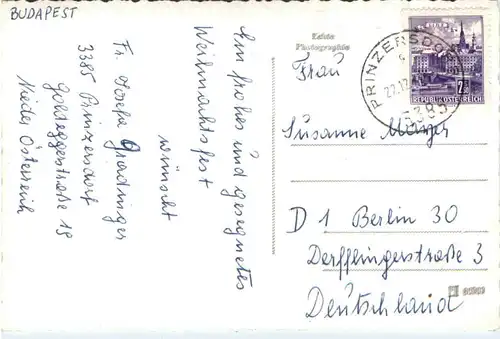 BUDAPEST
Ein frohes und gesegnetes
Weihnachtsfest
wünscht
Fr. Josefa Gradinger
3385 Prinzersdorf
Goldeggerstraße 19
Nieder Österreich
Echte
Photographie
PRINZERSDORF
22.12.
3385
REPUBLIK ÖSTERREICH
Frau
Susanne
D 1 Berlin 30
Derfflingerstraße 3
Deutschland